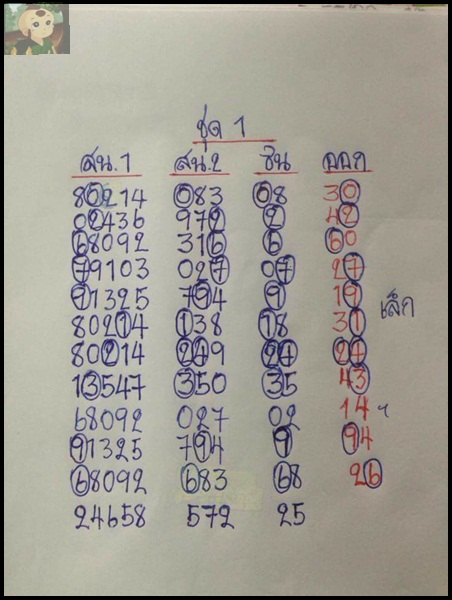 ชุด 1
สน.1 สน.2 ชิน ออก
80214 083 08 30
02436 972 2 42
68092 316 6 60
79103 027 07 27
91325 794 9 19
80214 138 18 31
เล็ก
80214 249 24 24
13547 350 35 43
68092 027 02 14
91325 794 9 94
68092 683 68 26
24658 572 25